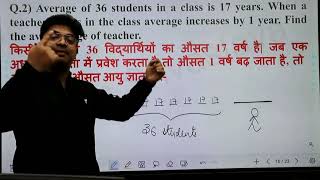 Q.2) Average of 36 students in a class is 17 years. When a
teacher in the class average increases by 1 year. Find
the av of teacher.
36 विद्यार्थियों का औसत 17 वर्ष है| जब एक
में प्रवेश करता तो औसत 1 वर्ष बढ़ जाता है, तो
औसत आयु
17 17 17 17
36 students